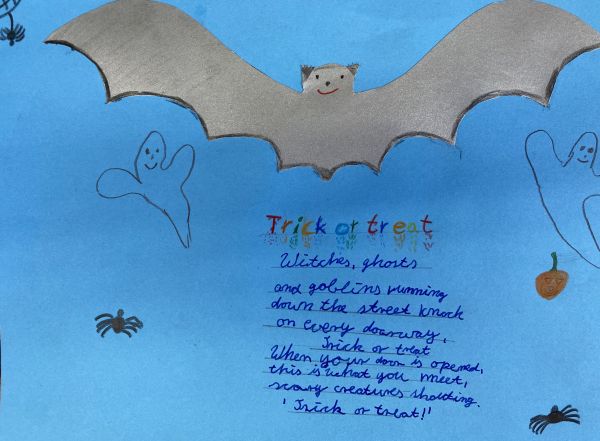 Trick or treat
Witches, ghosts
and goblins running
down the street knock
on every doorway,
Trick or treat
When your door is opened,
this is what you meet,
scary creatures shouting.
'Trick or treat!'